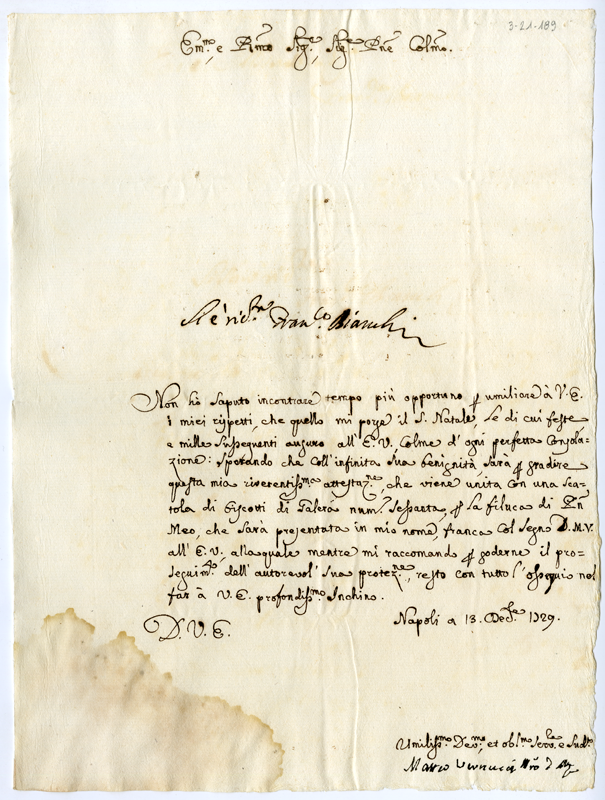 3-21-189
Em.mo e R.mo Sig.re, Sig.re P̃ne Colmo.
Fran.co Bianchi
Non hò saputo incontrare tempo più opportuno ꝑ umiliare à V. E.
i miei rispetti, che quello mi porge il S. Natale, le di cui feste
e mille sussequenti auguro all' E. V. Colme d'ogni perfetta Consola-
zione: sperando che coll'infinita sua benignità sarà ꝑ gradire
questa mia riverentiss.ma attestaz.ne, che viene unita con una sca-
tola di Biscotti di num.o sessanta, ꝑ la filuca di P̃n
Meo, che sarà presentata in mio nome franca Col Segno D.M.V.
all' E. V. alla quale mentre mi raccomando ꝑ goderne il pro-
seguim.to dell'autorevol' sua protez.ne, resto con tutto l'ossequi nel
far à V. E. profondiss.mo Inchino.
D. V. E. Napoli a 13. Dec.bre 1729.
Umiliss.mo Dev.mo, et obl.mo Serv.re e
Marco